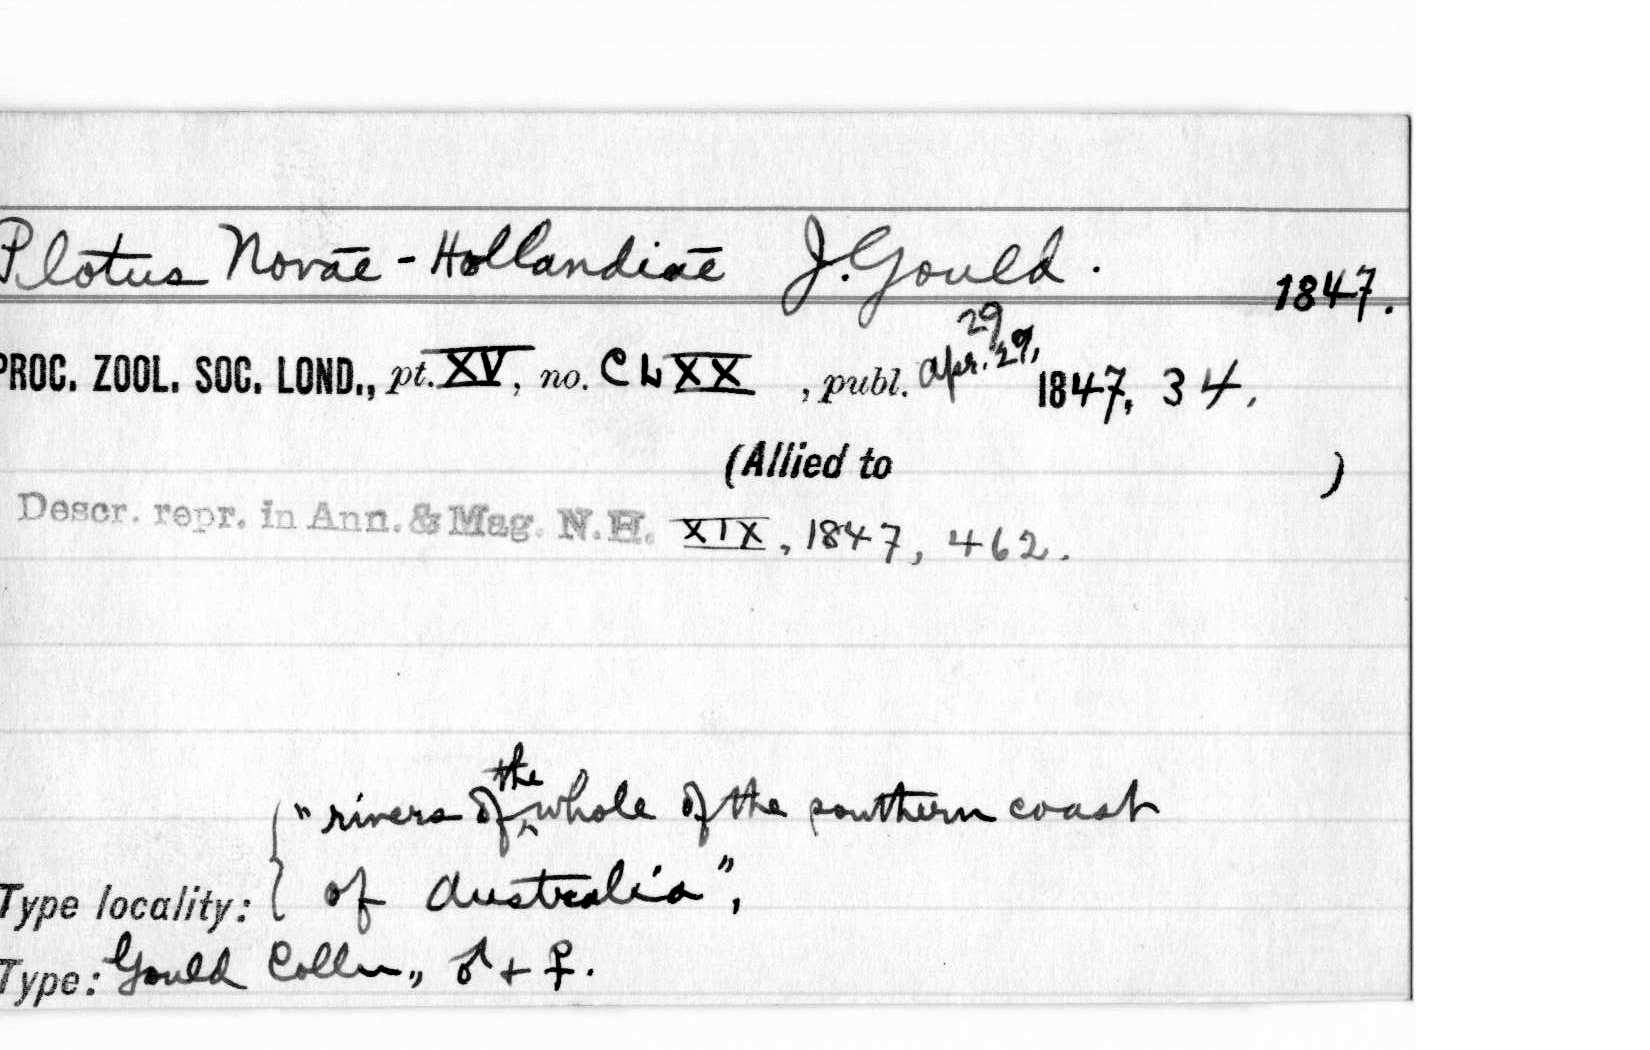 Plotus Novae-Hollandiae J. Gould. 1847.
PROC. ZOOL. SOC. LOND., pt. XV, no. CLXX , publ. Apr. 29, 29 1847, 34.
(Allied to )
Descr. repr. in Ann. & Mag. N.H. XIX, 1847, 462.
"rivers of the whole of the southern coast
Type locality: of Australia",
Type: Gould Colln., ♂ + ♀.